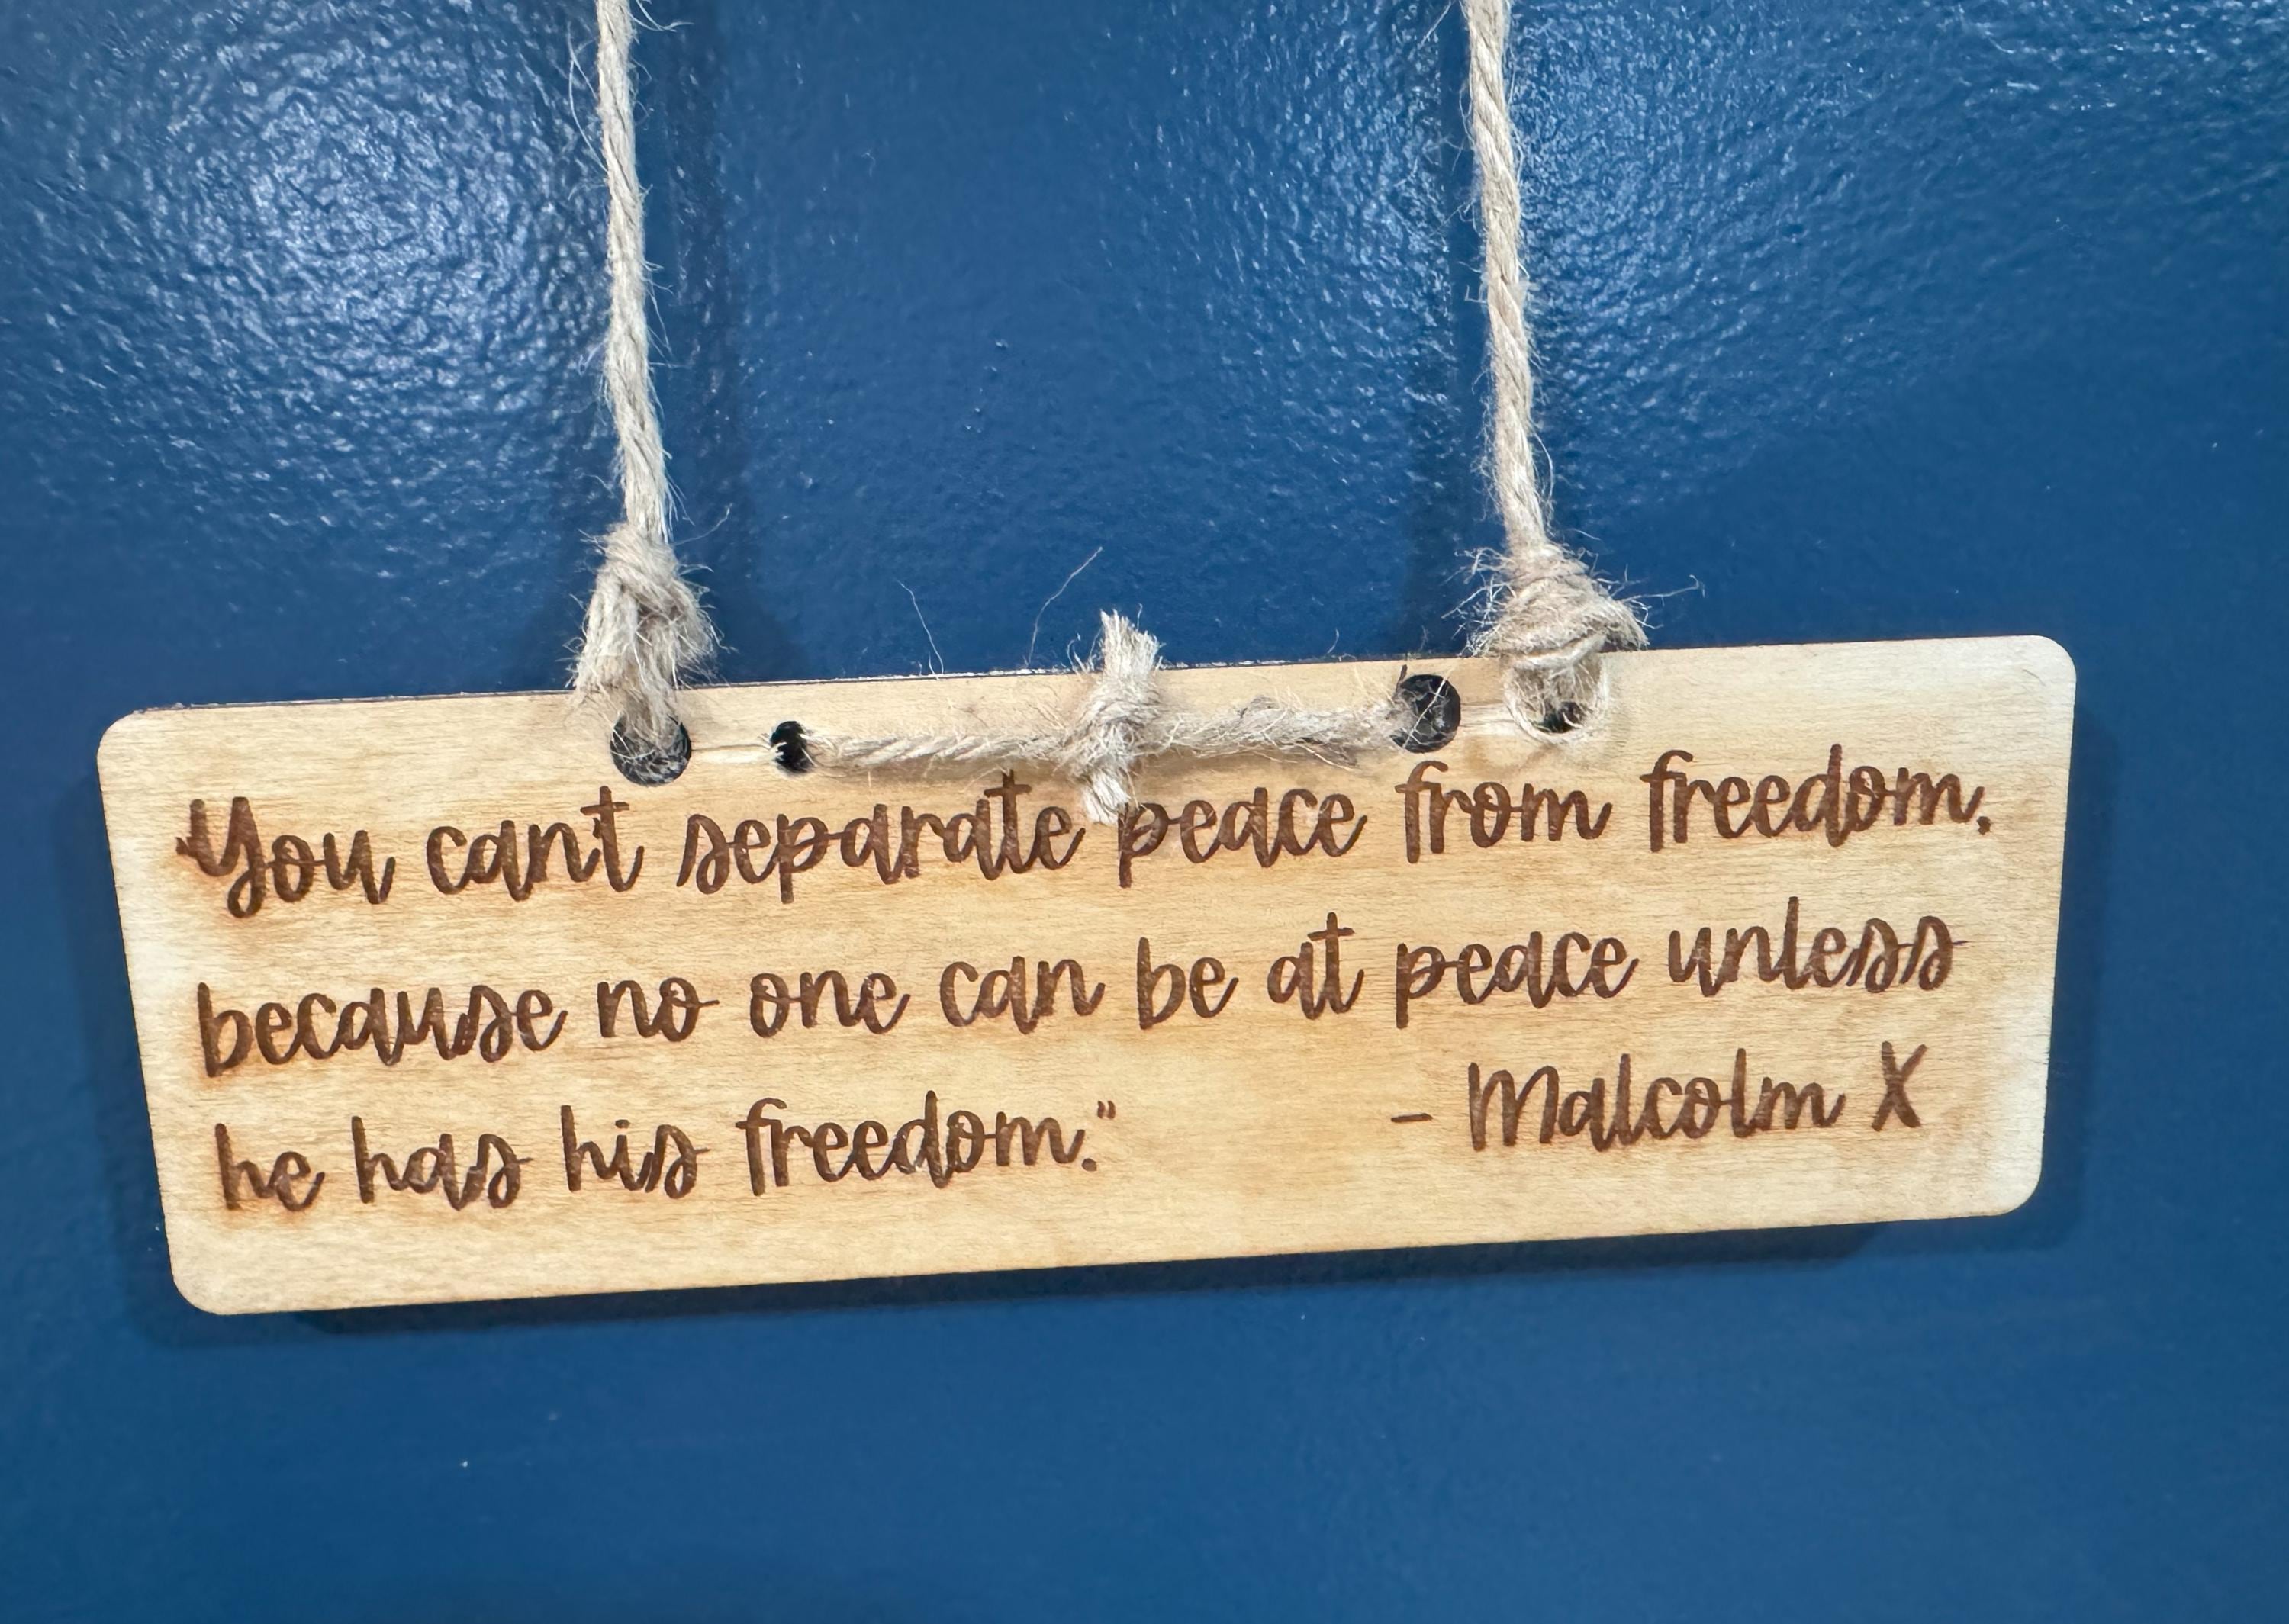 "You can't separate peace from freedom,
because no one can be at peace unless
he has his freedom."
- Malcolm X